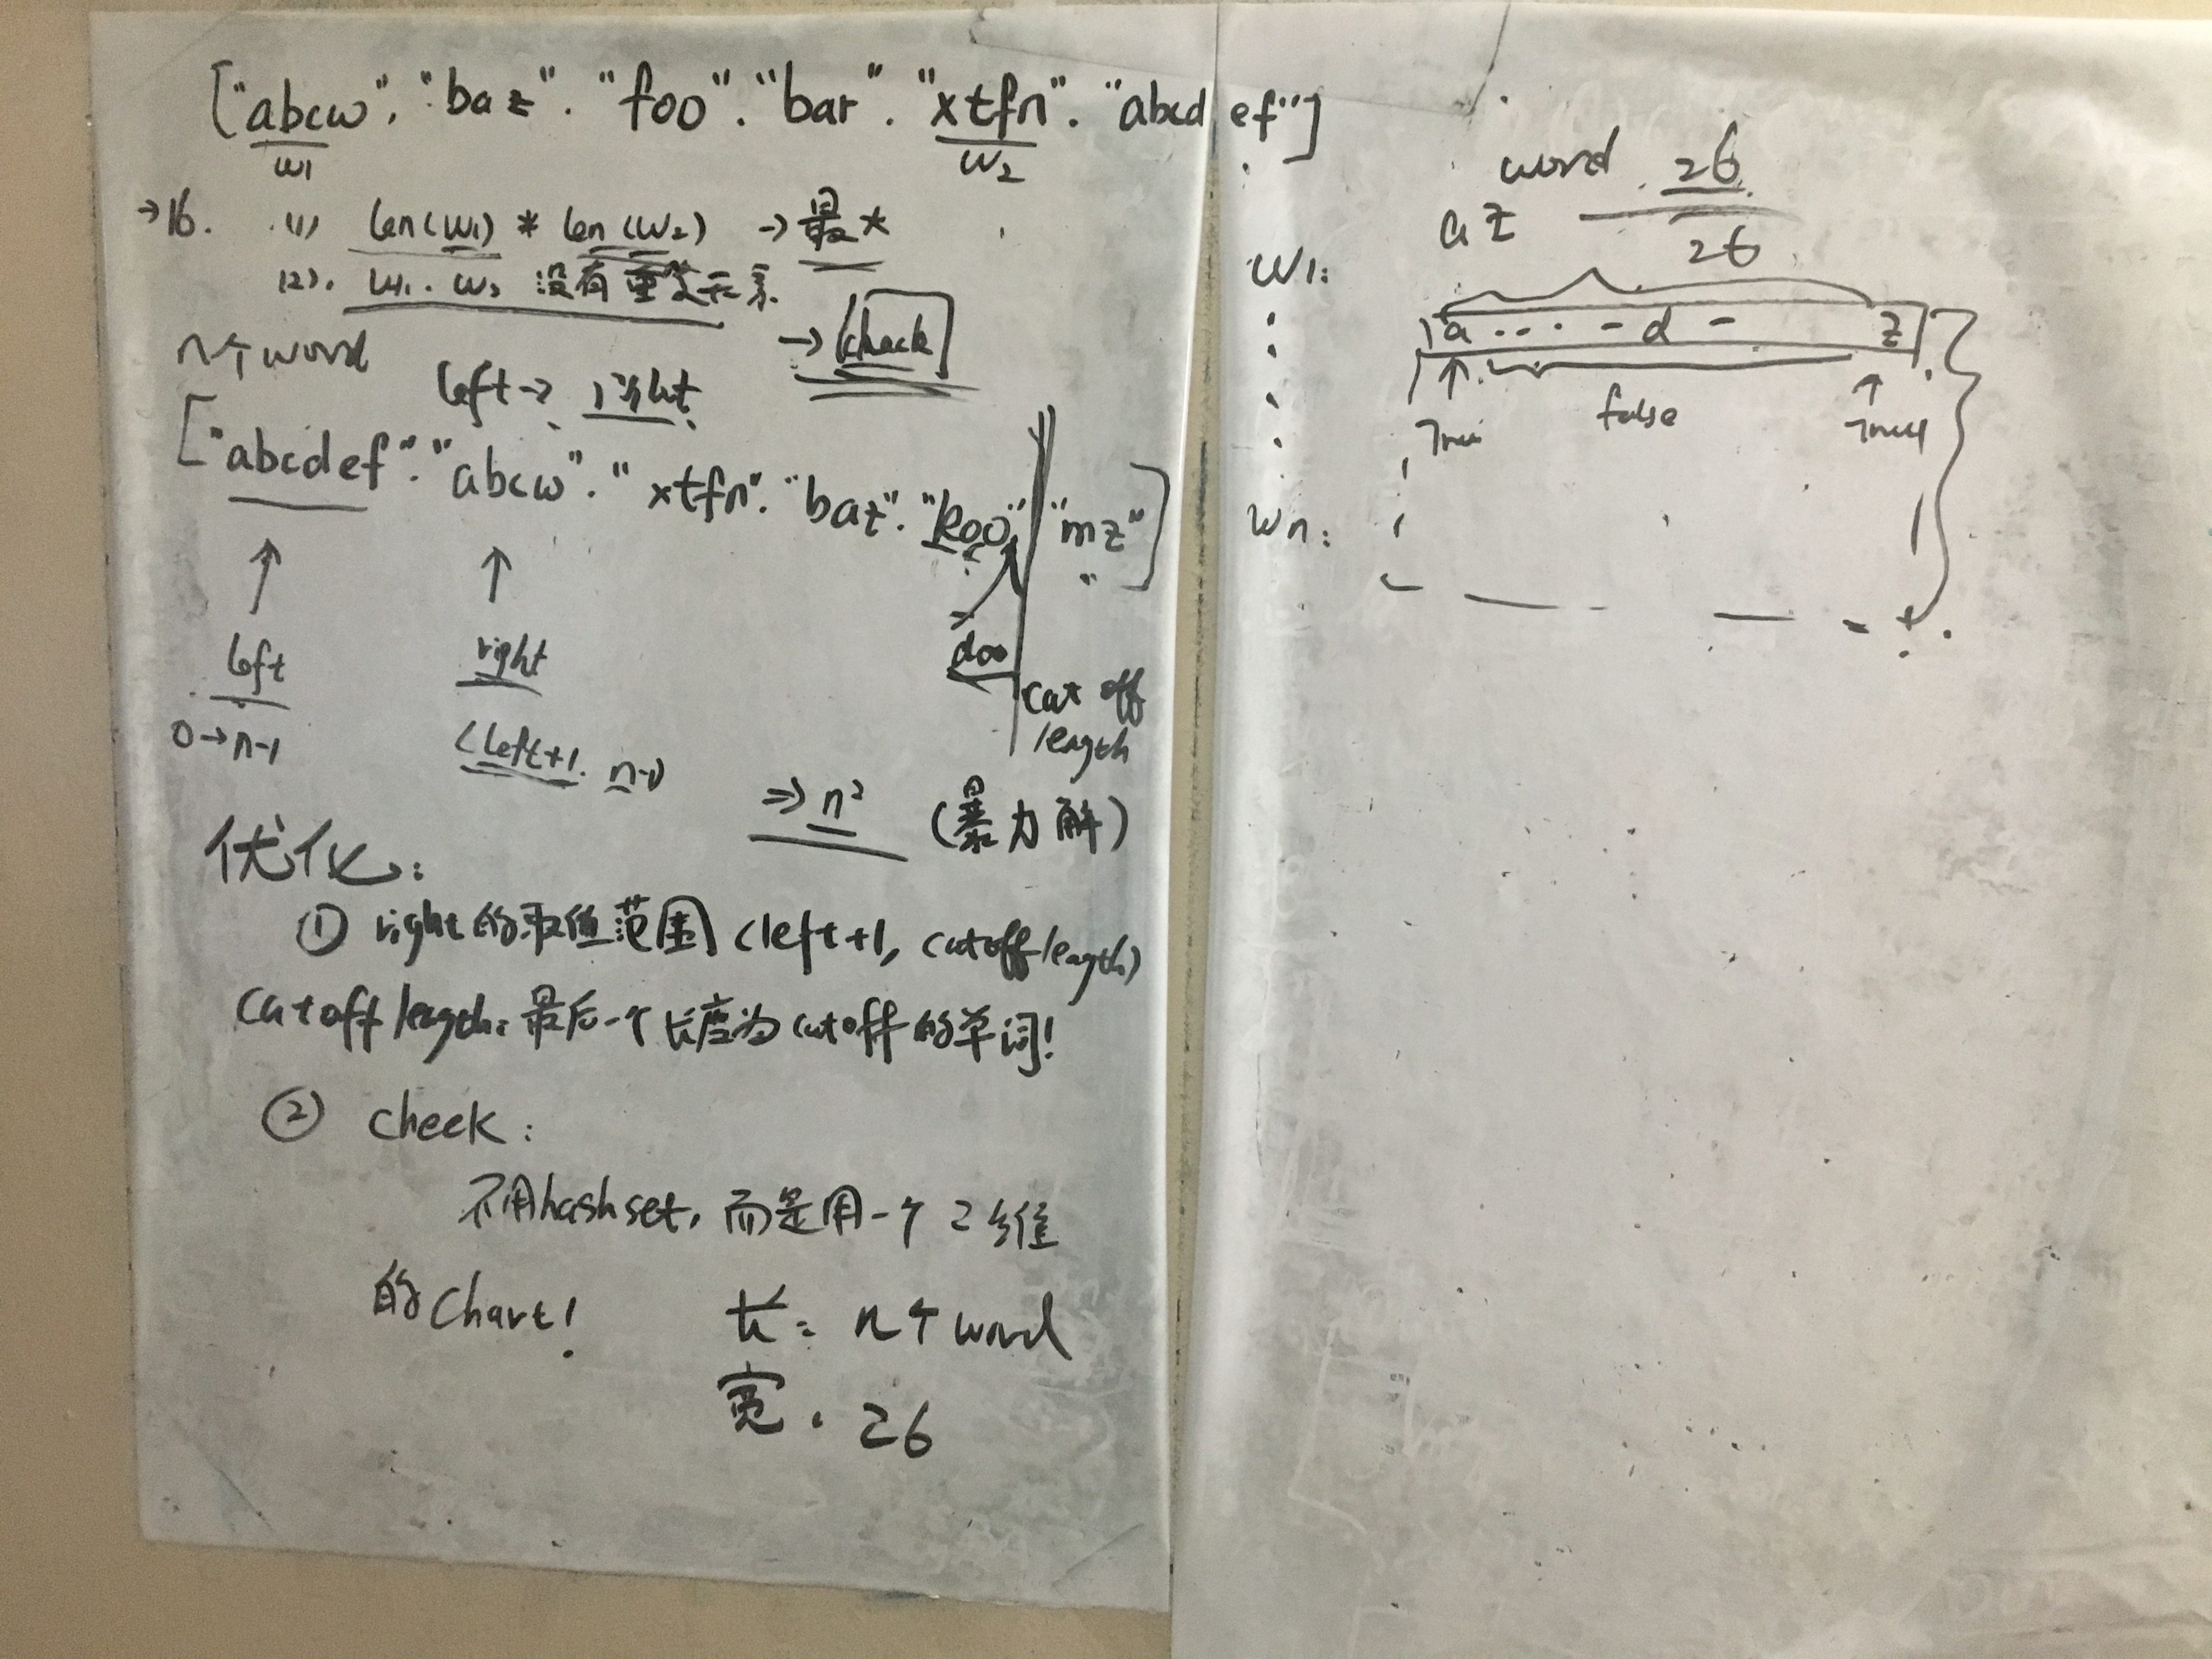 ["abcw". "baz". "foo". "bar". "xtfn". "abcdef"]
w1 w2
→16. (1) len(w1) * len(w2) → 最大
(2). w1. w2 没有重复元素
→ check
n个word
left → right
["abcdef". "abcw". "xtfn". "baz". "koo" "mz"]
left right
doo
cut off
length
0→n-1 (left+1. n-1)
⇒ n² (暴力解)
优化:
① right的取值范围 (left+1, cutoff length)
cut off length: 最后一个长度为cutoff的单词!
② check:
不用hashset, 而是用一个2维
的Chart!
长: n个word
宽. 26
word 26
az
26
w1:
a ... - d - z
True false True
wn: